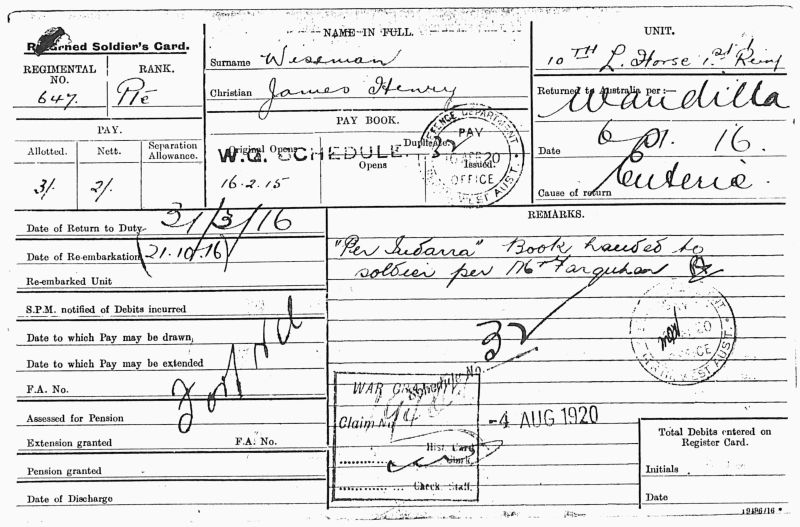 Returned Soldier's Card.
REGIMENTAL NO.
647.
RANK.
Pte
PAY.
Allotted.
Nett.
Separation Allowance.
3/-
2/-
NAME IN FULL.
Surname Wissman
Christian James Henry
PAY BOOK.
Original Opens
Duplicate Opens
Issued.
W.G. SCHEDULE
32
16.2.15
DEFENCE DEPARTMENT
PAY
20
OFFICE
WEST AUST.
UNIT.
10TH L. Horse 1st Reinf
Returned to Australia per:—
Wandilla
Date 6 16.
Cause of return Enteric.
Date of Return to Duty 31/3/16
Date of Re-embarkation (21.10.16)
Re-embarked Unit
S.P.M. notified of Debits incurred
Date to which Pay may be drawn,
Date to which Pay may be extended
F.A. No.
Assessed for Pension
Extension granted F.A. No.
Pension granted
Date of Discharge
REMARKS.
"Per Indarra" Book handed to
soldier per Mr Farquhar
32
20
OFFICE
WEST AUST.
WAR
Schedule No.
Claim No
Hist. Card
Clerk.
Check. Staff.
-4 AUG 1920
Total Debits entered on
Register Card.
Initials
Date